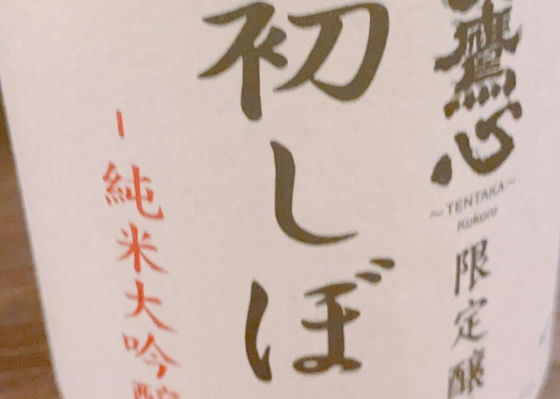 鷹心
~TENTAKA~
Kokoro
限定醸
初しぼ
純米大吟醸